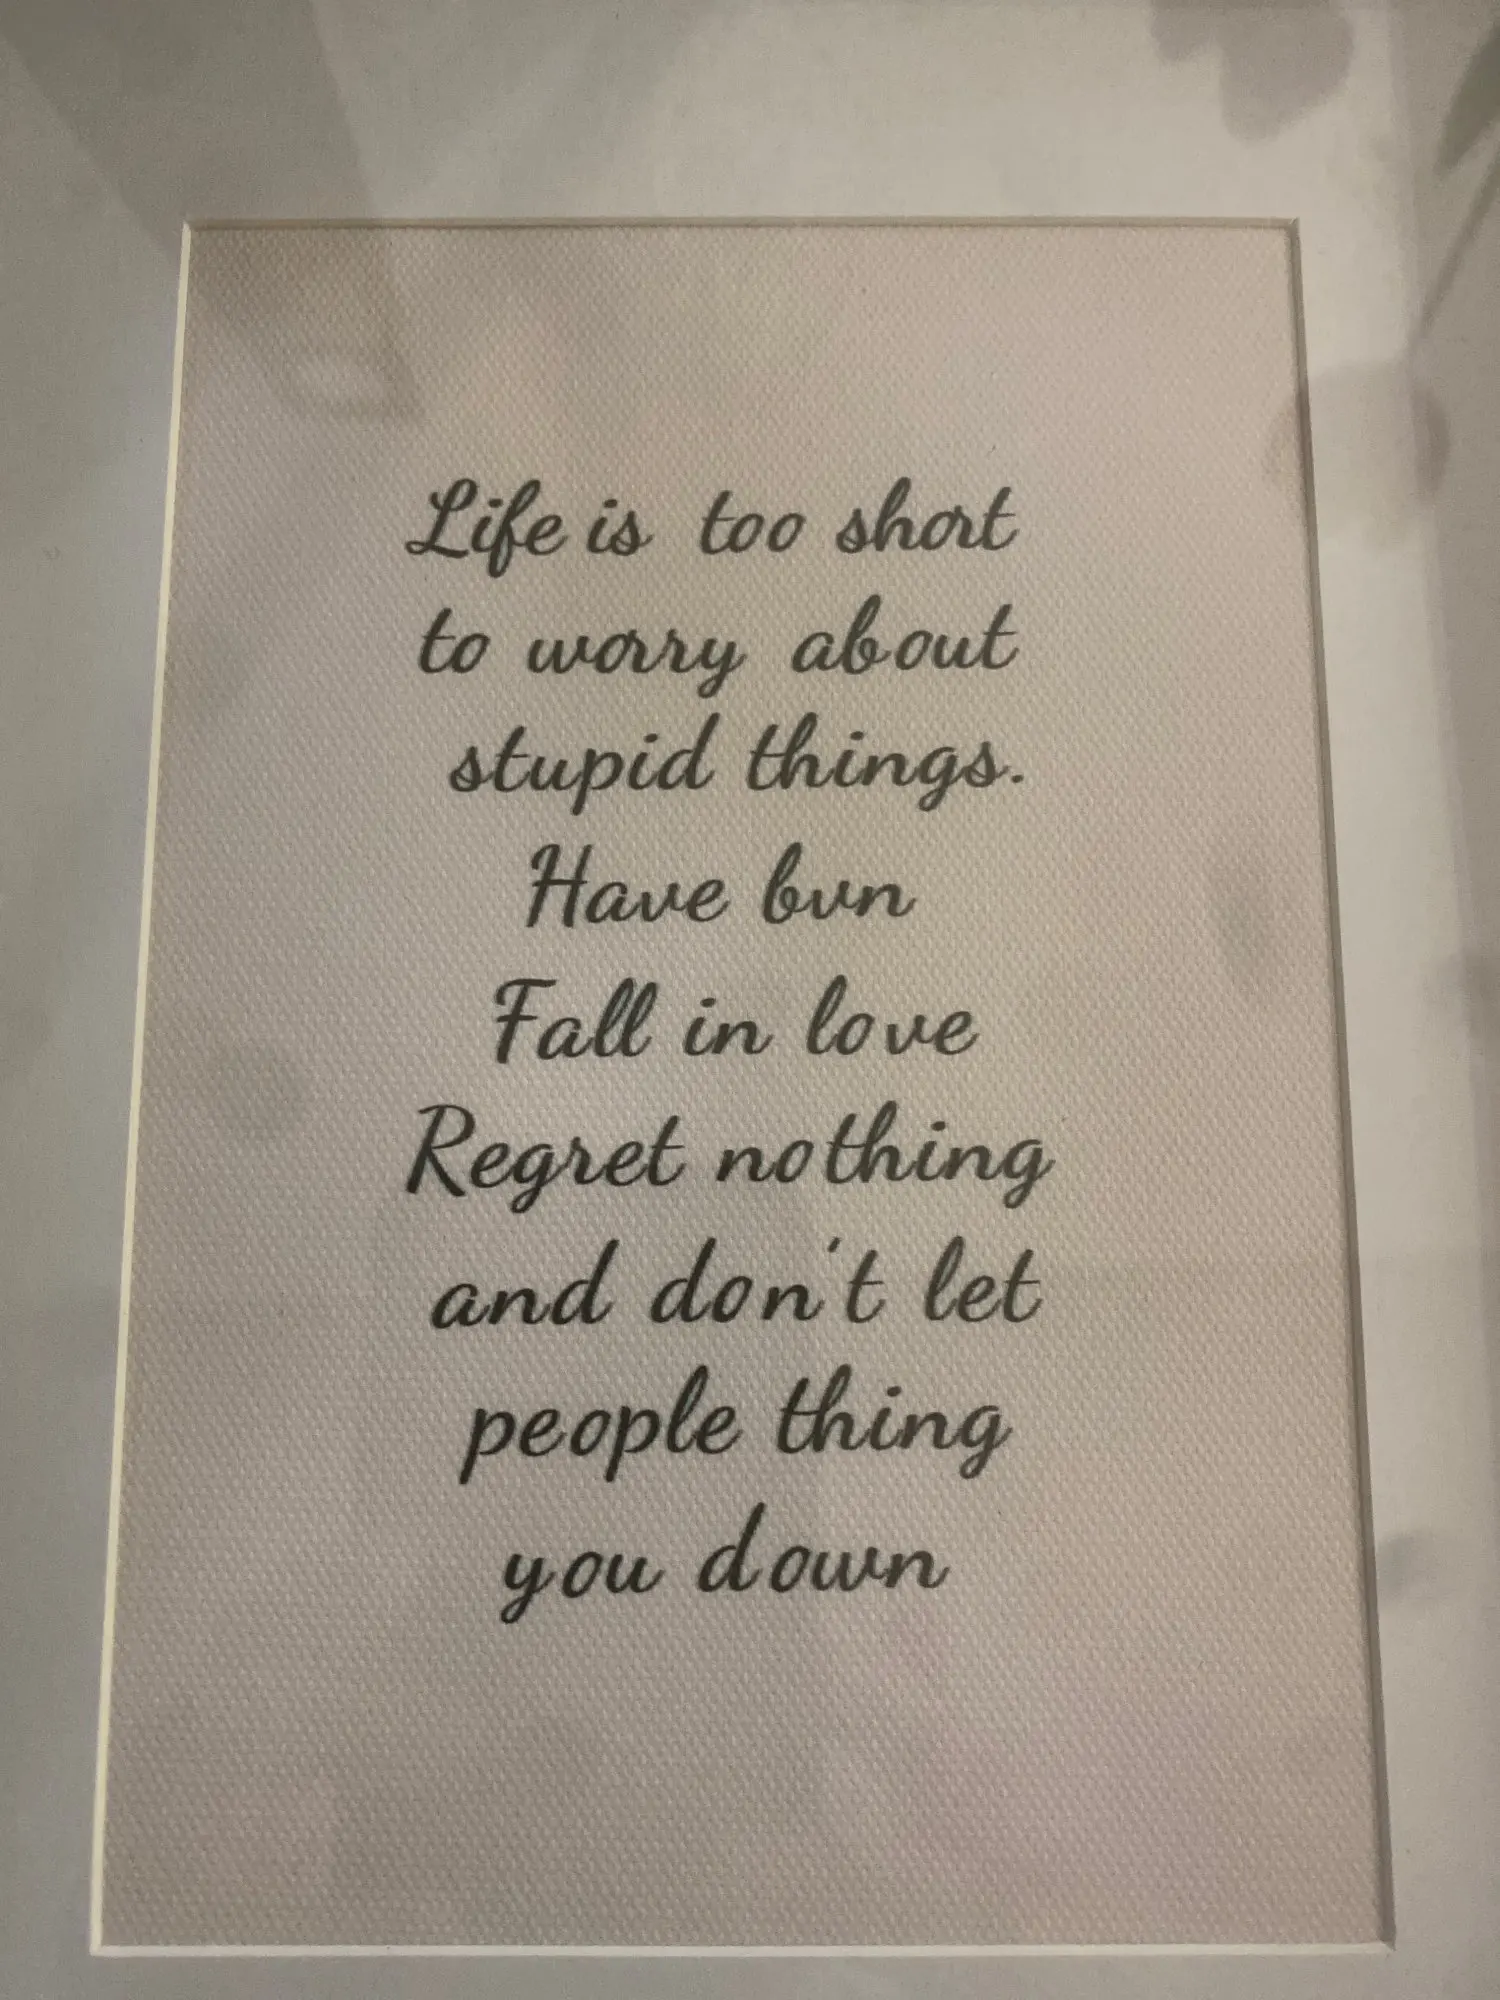 Life is too short
to worry about
stupid things.
Have bun
Fall in love
Regret nothing
and don't let
people thing
you down